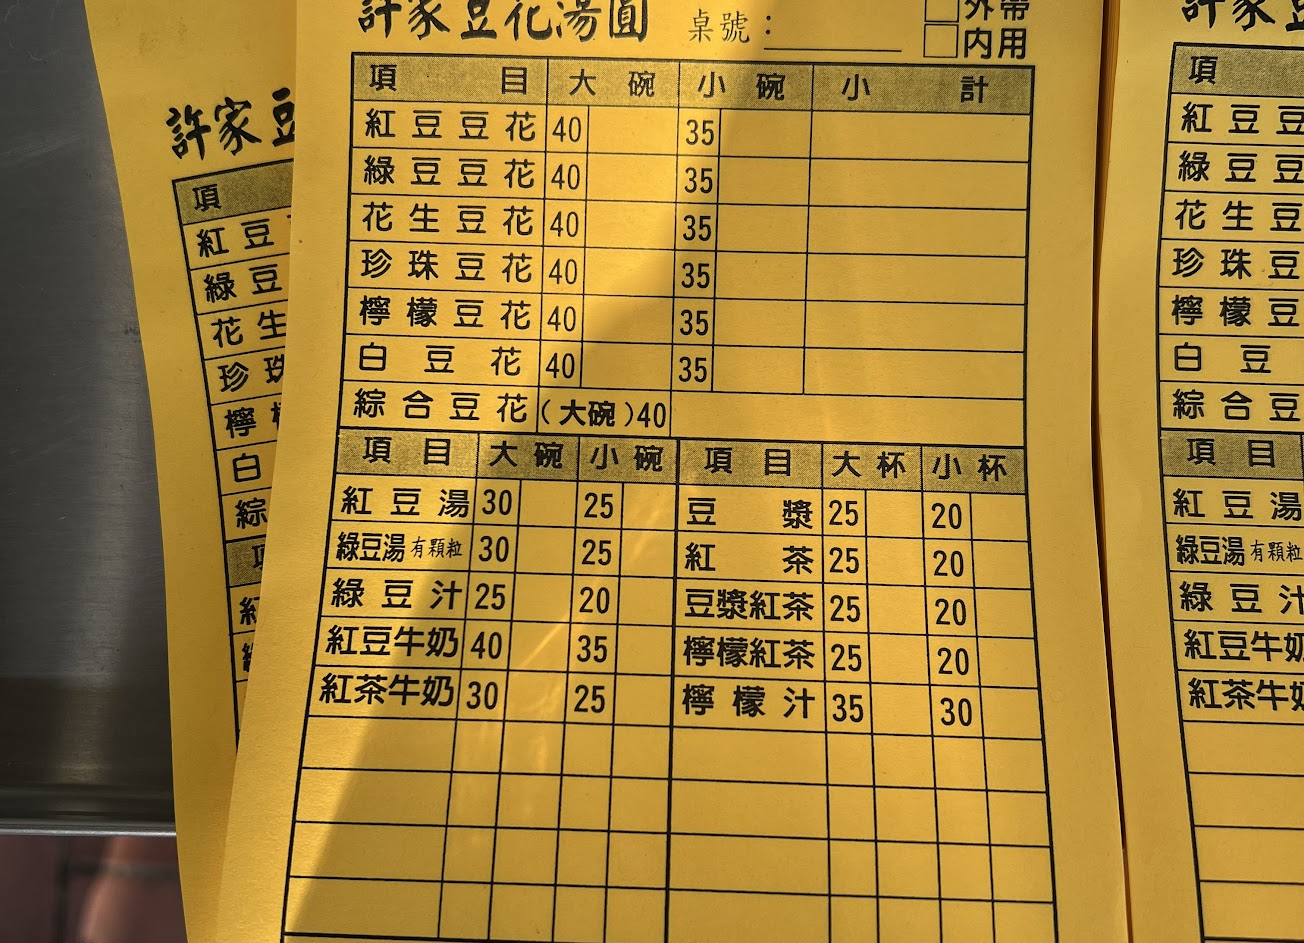 許家豆花湯圓 桌號：
外帶
內用
項目 大碗 小碗 小計
紅豆豆花 40 35
綠豆豆花 40 35
花生豆花 40 35
珍珠豆花 40 35
檸檬豆花 40 35
白豆花 40 35
綜合豆花(大碗)40
項目 大碗 小碗 項目 大杯 小杯
紅豆湯 30 25 豆漿 25 20
綠豆湯有顆粒 30 25 紅茶 25 20
綠豆汁 25 20 豆漿紅茶 25 20
紅豆牛奶 40 35 檸檬紅茶 25 20
紅茶牛奶 30 25 檸檬汁 35 30
許家豆
項
紅豆
綠豆
花生
珍珠
檸
白
綜
許家
項
紅豆豆
綠豆豆
花生豆
珍珠豆
檸檬豆
白豆
綜合豆
項目
紅豆湯
綠豆湯有顆粒
綠豆汁
紅豆牛奶
紅茶牛奶